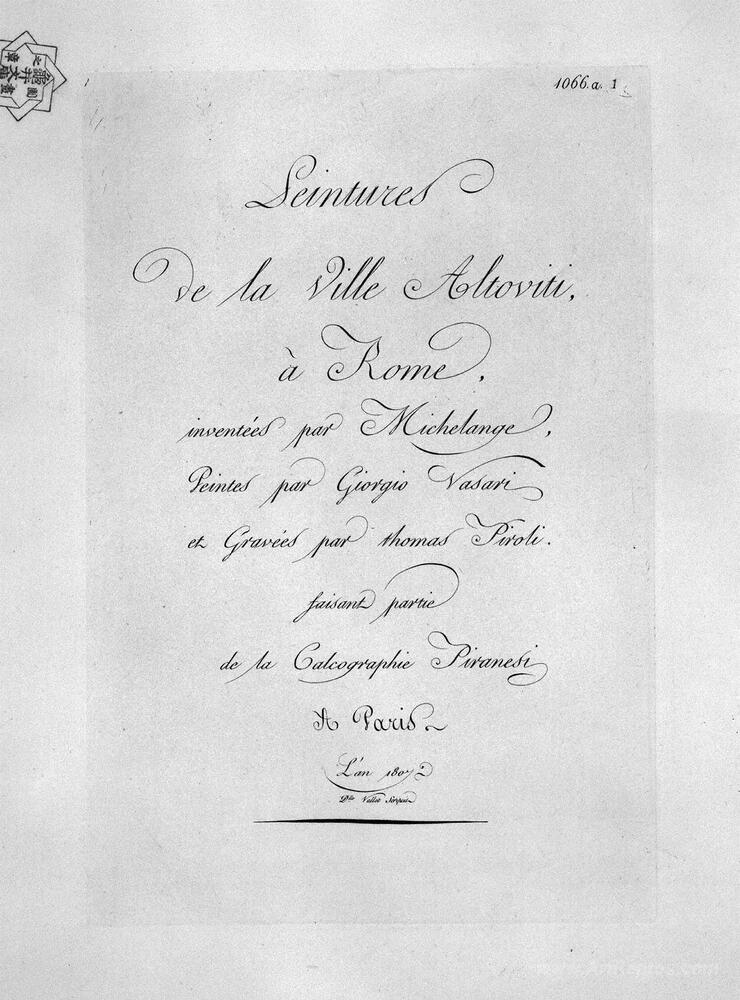 1066. a. 1
Peintures
de la Ville Altoviti,
à Rome,
inventées par Michelange,
Peintes par Giorgio Vasari
et Gravées par thomas Piroli.
faisant partie
de la Calcographie Piranesi
A Paris.
L'an 1807